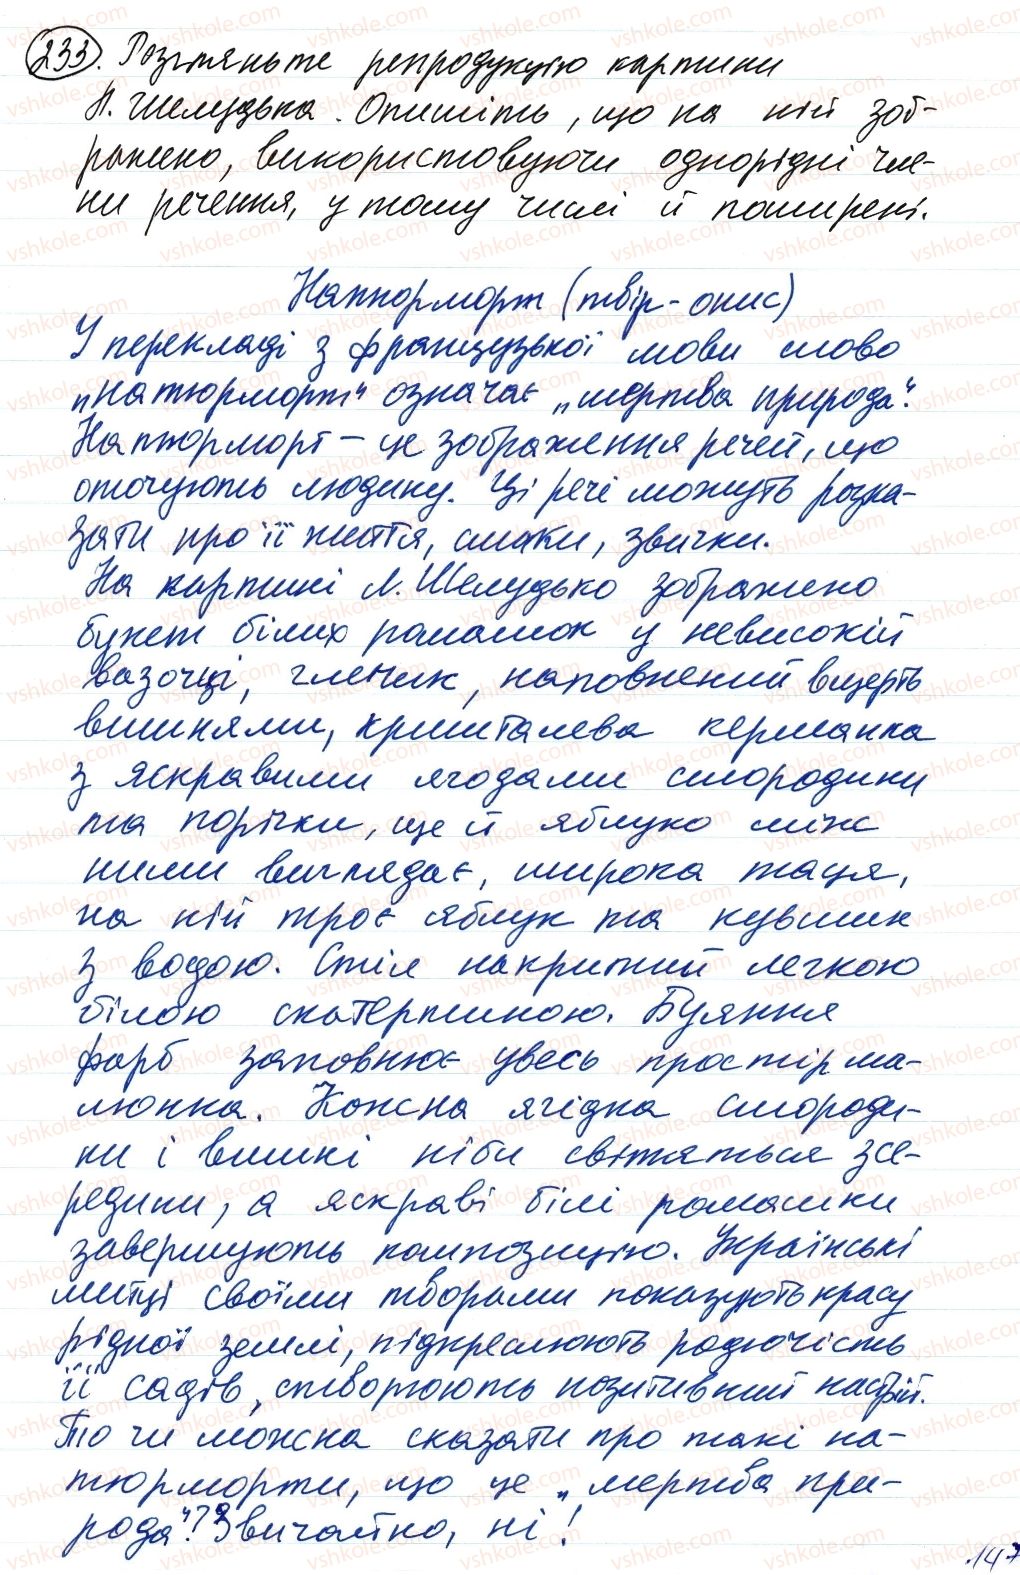 233. Розгляньте репродукцію картини
Л. Шелудька. Опишіть, що на ній зоб-
ражено, використовуючи однорідні чле-
ни речення, у тому числі й поширені.
Натюрморт (твір-опис)
У перекладі з французької мови слово
„натюрморт" означає „мертва природа".
Натюрморт – це зображення речей, що
оточують людину. Ці речі можуть розка-
зати про її життя, смаки, звички.
На картині Л. Шелудько зображено
букет білих ромашок у невисокій
вазочці, глечик, наповнений вщерть
вишнями, кришталева керманка
з яскравими ягодами смородини
та порічки, ще й яблуко між
ними виглядає, широка таця,
на ній троє яблук та кувшин
з водою. Стіл накритий легкою
білою скатертиною. Буяння
фарб заповнює увесь простір ма-
люнка. Кожна ягідка смороди-
ни і вишні ніби світяться зсе-
редини, а яскраві білі ромашки
завершують композицію. Українські
митці своїми творами показують красу
рідної землі, підкреслюють родючість
її садів, створюють позитивний настрій.
То чи можна сказати про такі на-
тюрморти, що це „мертва при-
рода"? Звичайно, ні!
147
vshkole.com